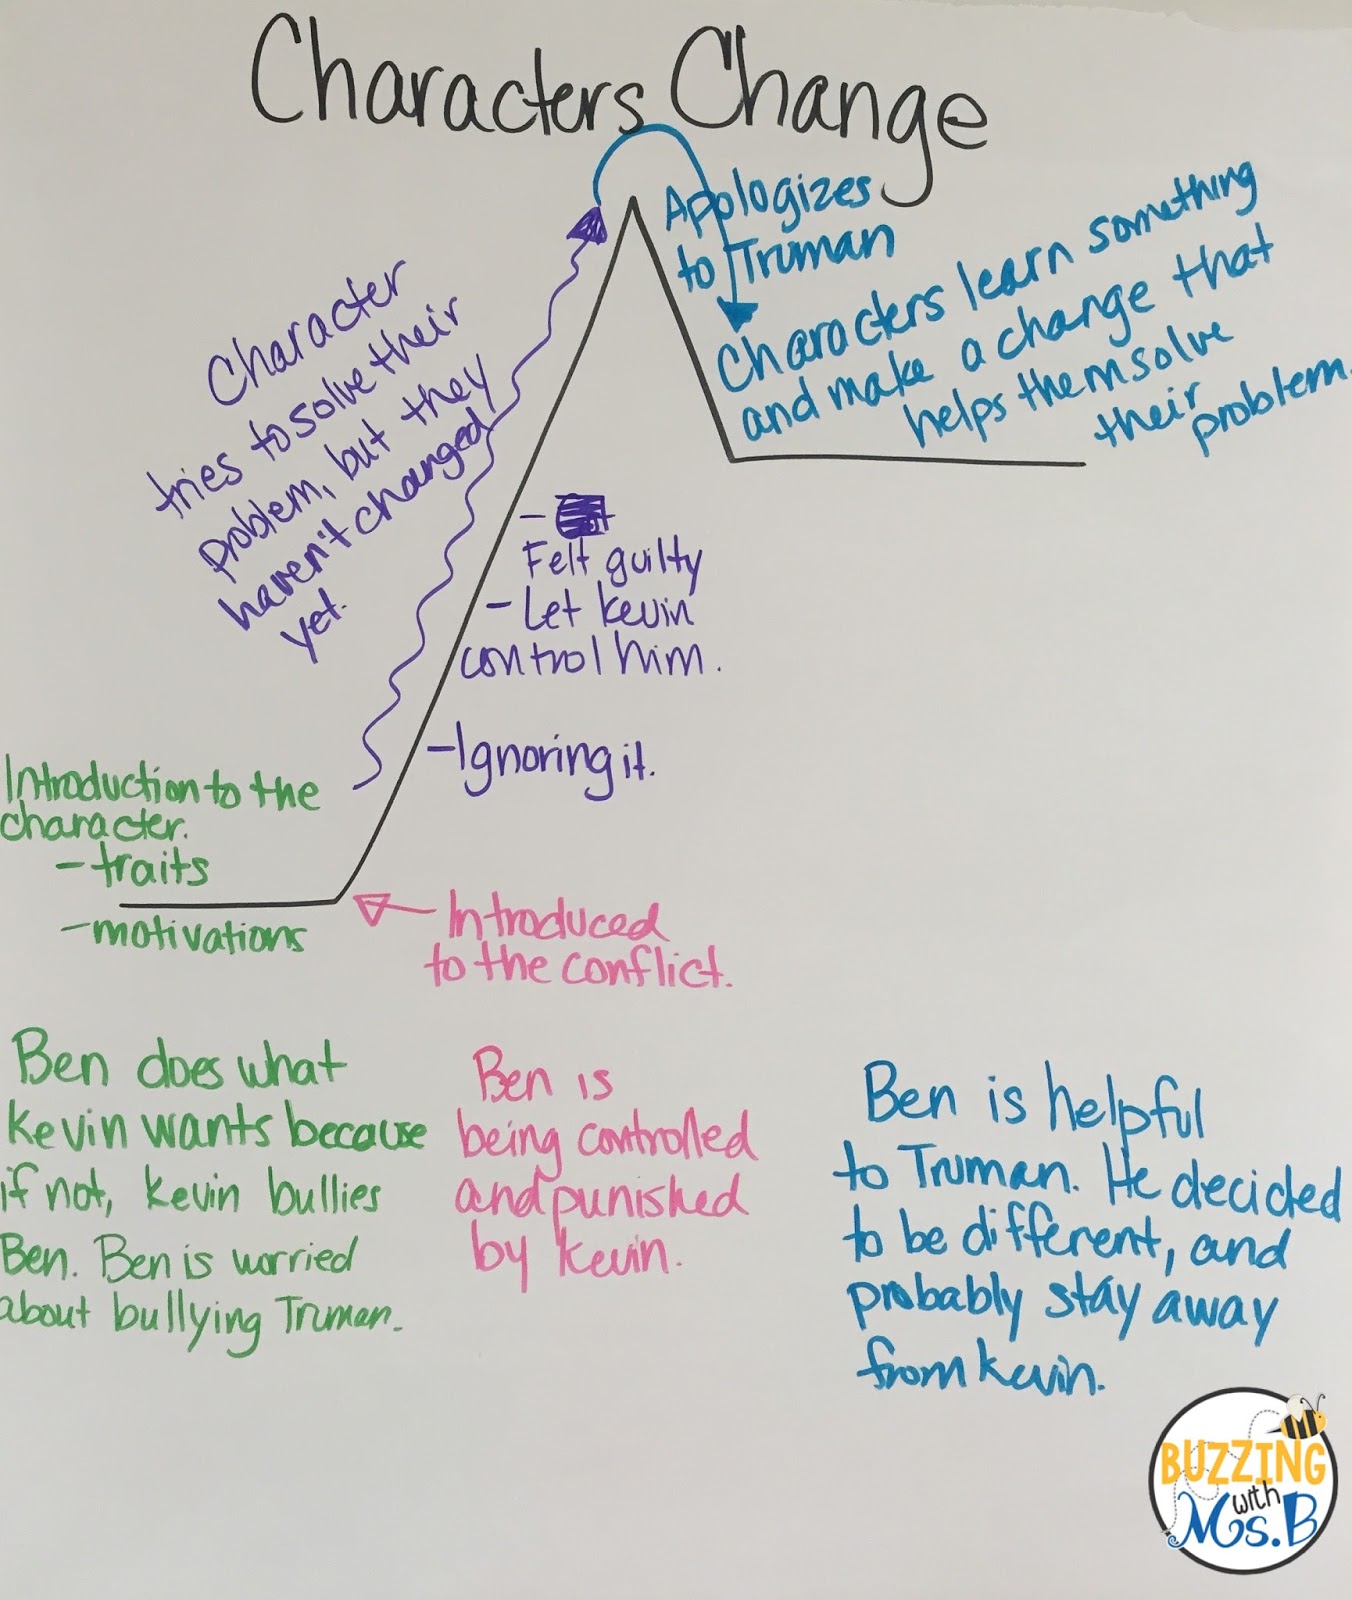 Characters Change
Apologizes
to Truman
Characters learn something
and make a change that
helps them solve
their
problem.
Character
tries to solve their
problem, but they
haven't changed
yet.
-
Felt guilty
- Let Kevin
control him.
- Ignoring it.
Introduction to the
character.
- traits
- motivations
Introduced
to the conflict.
Ben does what
Kevin wants because
if not, Kevin bullies
Ben. Ben is worried
about bullying Truman.
Ben is
being controlled
and punished
by Kevin.
Ben is helpful
to Truman. He decided
to be different, and
probably stay away
from Kevin.
BUZZING
with
Ms. B